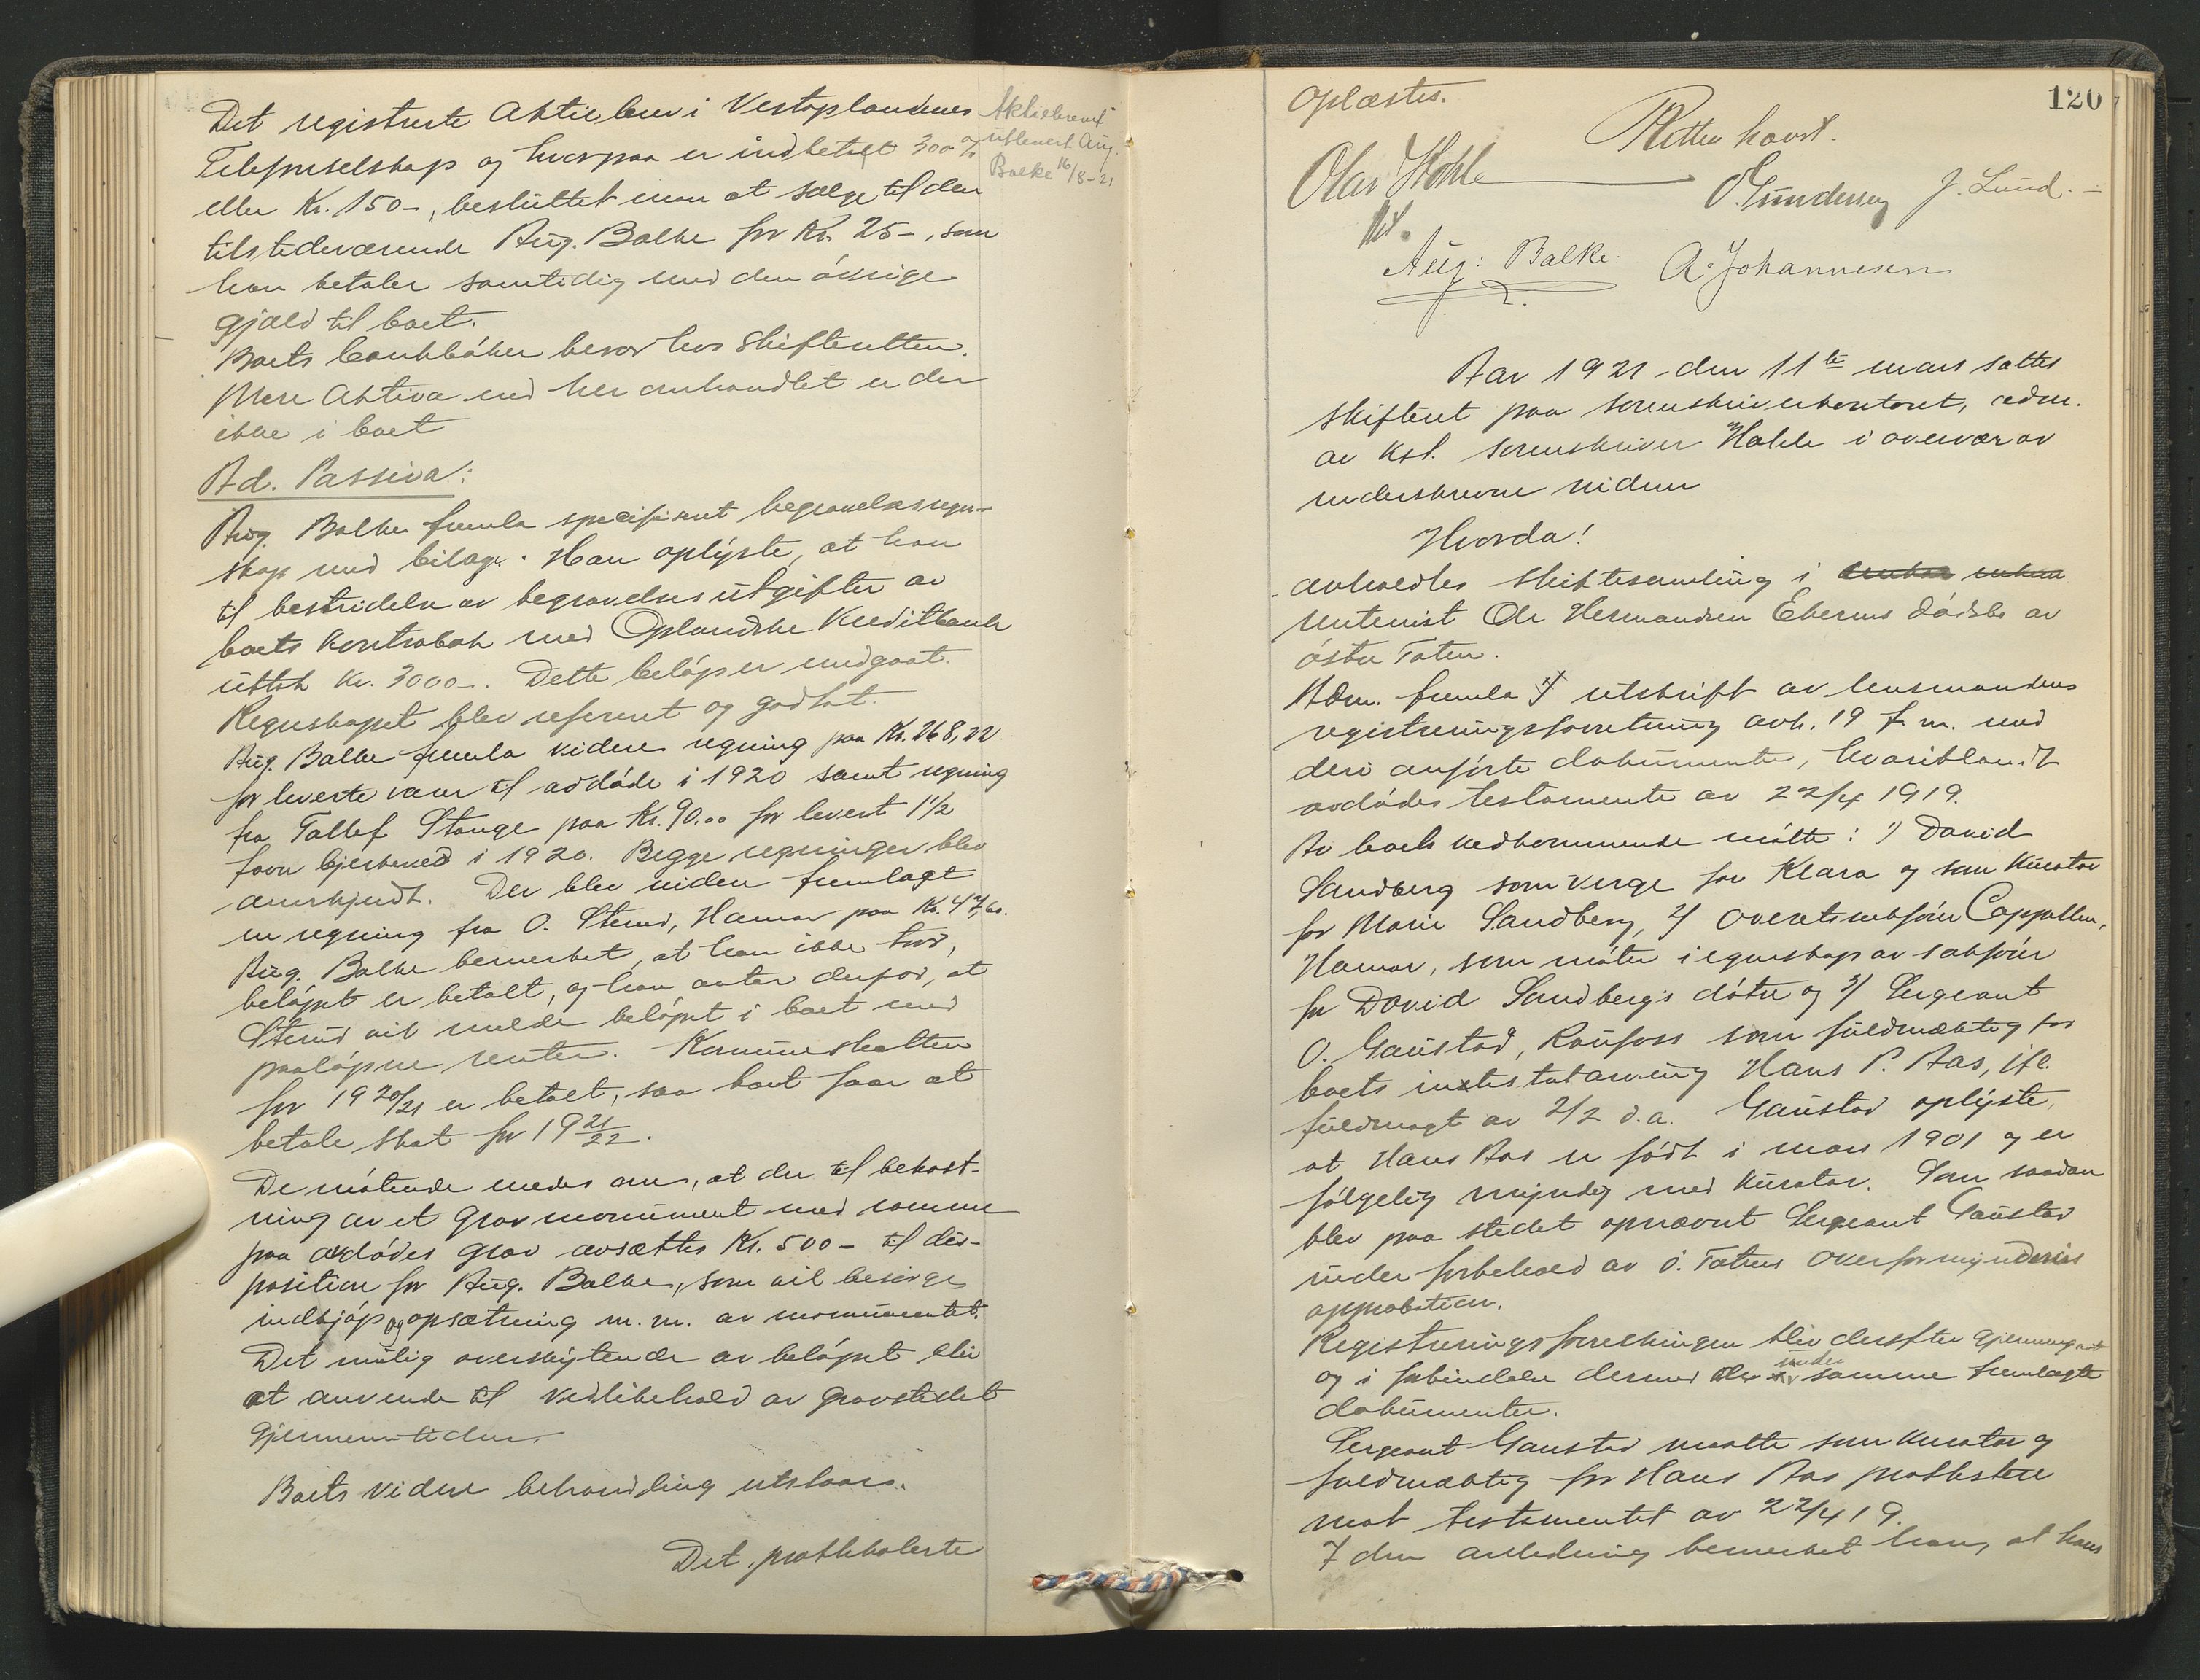 Det registrerte Aktiebrev i Vestoplandenes
Telefonselskap og hvorpaa er indbetalt 300 %
eller Kr. 150-, besluttet man at sælge til den
tilstedeværende Aug. Balke for Kr. 25-, som
han betaler samtidig med den øvrige
gjæld til boet.
Aktiebrevet
utlevert Aug.
Balke 16/8-21
Boets bankbøker beror hos skifteretten.
Mere Aktiva end her omhandlet er der
ikke i boet
Ad. Passiva:
Aug. Balke fremla specifisert begravelsesregn-
skap med bilag. Han oplyste, at han
til bestridelse av begravelsesutgifter av
boets kontrabok med Oplandske Kreditbank
uttok kr. 3000-. Dette beløp er medgaat.
Regnskapet blev referert og godtat.
Aug. Balke fremla videre regning paa Kr. 268,22
for leverte varer til avdøde i 1920 samt regning
fra Tollef Stange paa Kr. 90.00 for levert 1 1/2
favn bjerkeved i 1920. Begge regninger blev
anerkjendt. Der blev videre fremlagt
en regning fra O. Sterud, Hamar paa Kr. 47,60.
Aug. Balke bemerket, at han ikke tror,
beløpet er betalt, og han antar derfor, at
Sterud vil melde beløpet i boet med
paaløpne renter. Kommuneskatten
for 1920/21 er betalt, saa boet faar at
betale skat for 19 21/22.
De møtende enedes om, at der til bekost-
ning av et gravmonument med ramme
paa avdødes grav avsættes Kr. 500- til dis-
position for Aug. Balke, som vil besørge
indkjøp og opsætning m.m. av monumentet.
Det mulig overskytende av beløpet blir
at anvende til vedlikehold av gravstedet
gjennem tiden.
Boets videre behandling utstaar.
Det protokolerte
120
oplæstes.
Retten hævet.
Olav Hohle
O. Gundersen J. Lund.
Aug: Balke. A. Johannesen
Aar 1921 den 11te mars sattes
skifteret paa sorenskriverkontoret, adm.
av kst. sorenskriver Hohle i overvær av
underskrevne vidner
Hvorda!
avholdtes skiftesamling i
rentenist Ole Hermandsen Ekerns dødsbo av
østre Toten.
Adm. fremla 1/ utskrift av lensmandens
registreringsforretning avh. 19 f. m. med
deri anførte dokumenter, hvoriblandt
avdødes testamente av 22/4 1919.
Av boets vedkommende møtte: 1) David
Sandberg som verge for Klara og som kurator
for Marie Sandberg, 2/ overretssakfører Cappellen,
Hamar, som møter i egenskap av sakfører
for David Sandbergs døtre og 3/ Sergeant
O. Gaustad, Raufoss som fuldmægtig for
boets intestatarving Hans P. Aas, ifl.
fuldmagt av 2/2 d.a. Gaustad oplyste,
at Hans Aas er født i mars 1901 og er
følgelig myndig med kurator. Som saadan
blev paa stedet opnævnt Sergeant Gaustad
under forbehold av ø. Totens overformynderies
approbation.
Registreringsforretningen blev derefter gjennemgaat
og i forbindelse dermed de under samme fremlagte
dokumenter.
Sergeant Gaustad maatte som kurator og
fuldmægtig for Hans Aas protestere
mot testamentet av 22/4 19.
I den anledning bemerket han, at hans